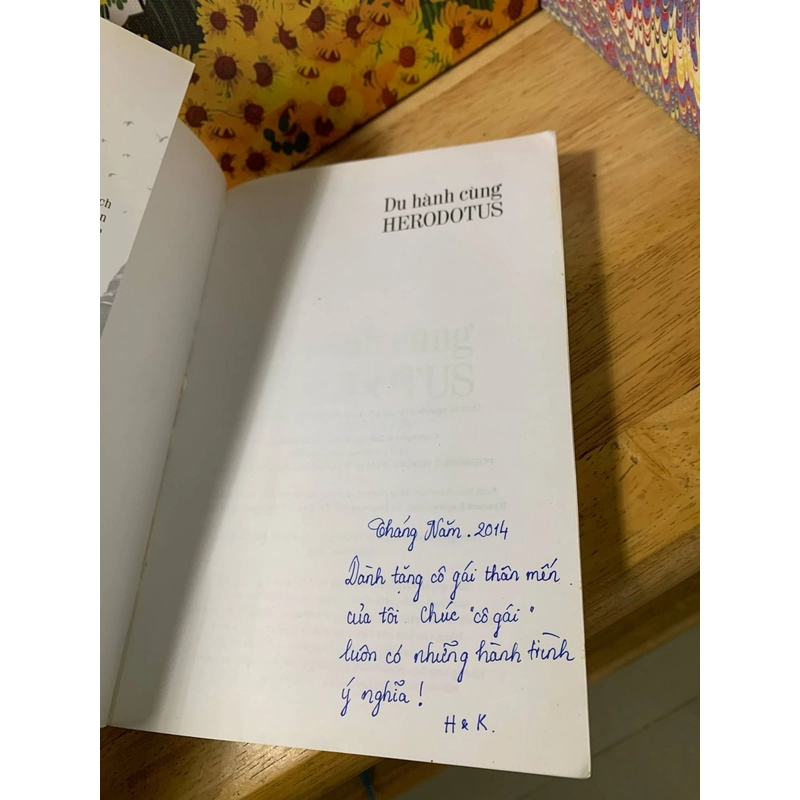 ch
n
Du hành cùng
HERODOTUS
Tháng Năm. 2014
Dành tặng cô gái thân mến
của tôi. Chúc "cô gái"
luôn có những hành trình
ý nghĩa!
H & K.